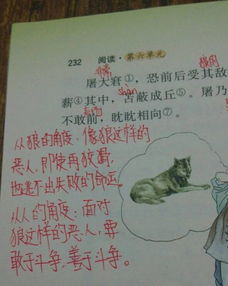 232 阅读·第六单元
屠大窘①,恐前后受其敌
薪④其中,苫蔽成丘⑤。屠乃
不敢前,眈眈相向⑦。
从狼的角度:像狼这样的
恶人,即使再狡猾,
也逃不出失败的命运。
从人的角度:面对
狼这样的恶人,要
敢于斗争,善于斗争。